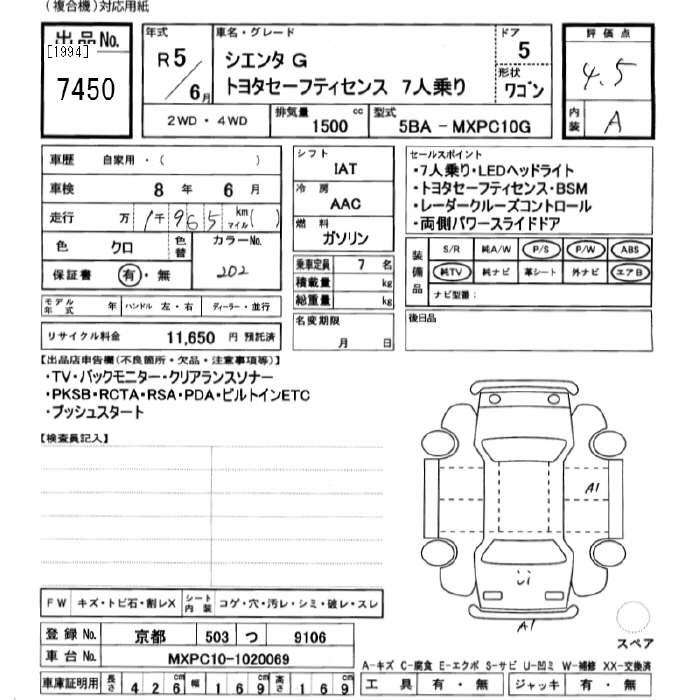 (複合機)対応用紙
出品No.
[1994]
7450
年式
R5/6月
車名・グレード
シエンタ G
トヨタセーフティセンス 7人乗り
ドア
5
形状
ワゴン
2WD・4WD
排気量
1500 cc
型式
5BA - MXPC10G
評価点
4.5
内装
A
車歴 自家用・( )
車検 8 年 6 月
走行 万 1 千 9 6 5 km マイル ( )
色 クロ 色替 カラーNo.
202
保証書 有・無
モデル年式 年 ハンドル 左・右 ディーラー・並行
リサイクル料金 11,650 円 預託済
シフト
IAT
冷房
AAC
燃料
ガソリン
乗車定員 7 名
積載量 kg
総重量 kg
名変期限
月 日
セールスポイント
・7人乗り・LEDヘッドライト
・トヨタセーフティセンス・BSM
・レーダークルーズコントロール
・両側パワースライドドア
装備品
S/R 純A/W P/S P/W ABS
純TV 純ナビ 革シート 外ナビ エアB
ナビ型番:
後日品
【出品店申告欄(不良箇所・欠品・注意事項等)】
・TV・バックモニター・クリアランスソナー
・PKSB・RCTA・RSA・PDA・ビルトインETC
・プッシュスタート
【検査員記入】
A1
A1
スペア
FW キズ・トビ石・割レX シート内装 コゲ・穴・汚レ・シミ・破レ・スレ
登録No. 京都 503 つ 9106
車台No. MXPC10-1020069
車庫証明用 長さ 426 cm 幅 169 cm 高さ 169 cm
A-キズ C-腐食 E-エクボ S-サビ U-凹ミ W-補修 XX-交換済
工具 有・無 ジャッキ 有・無